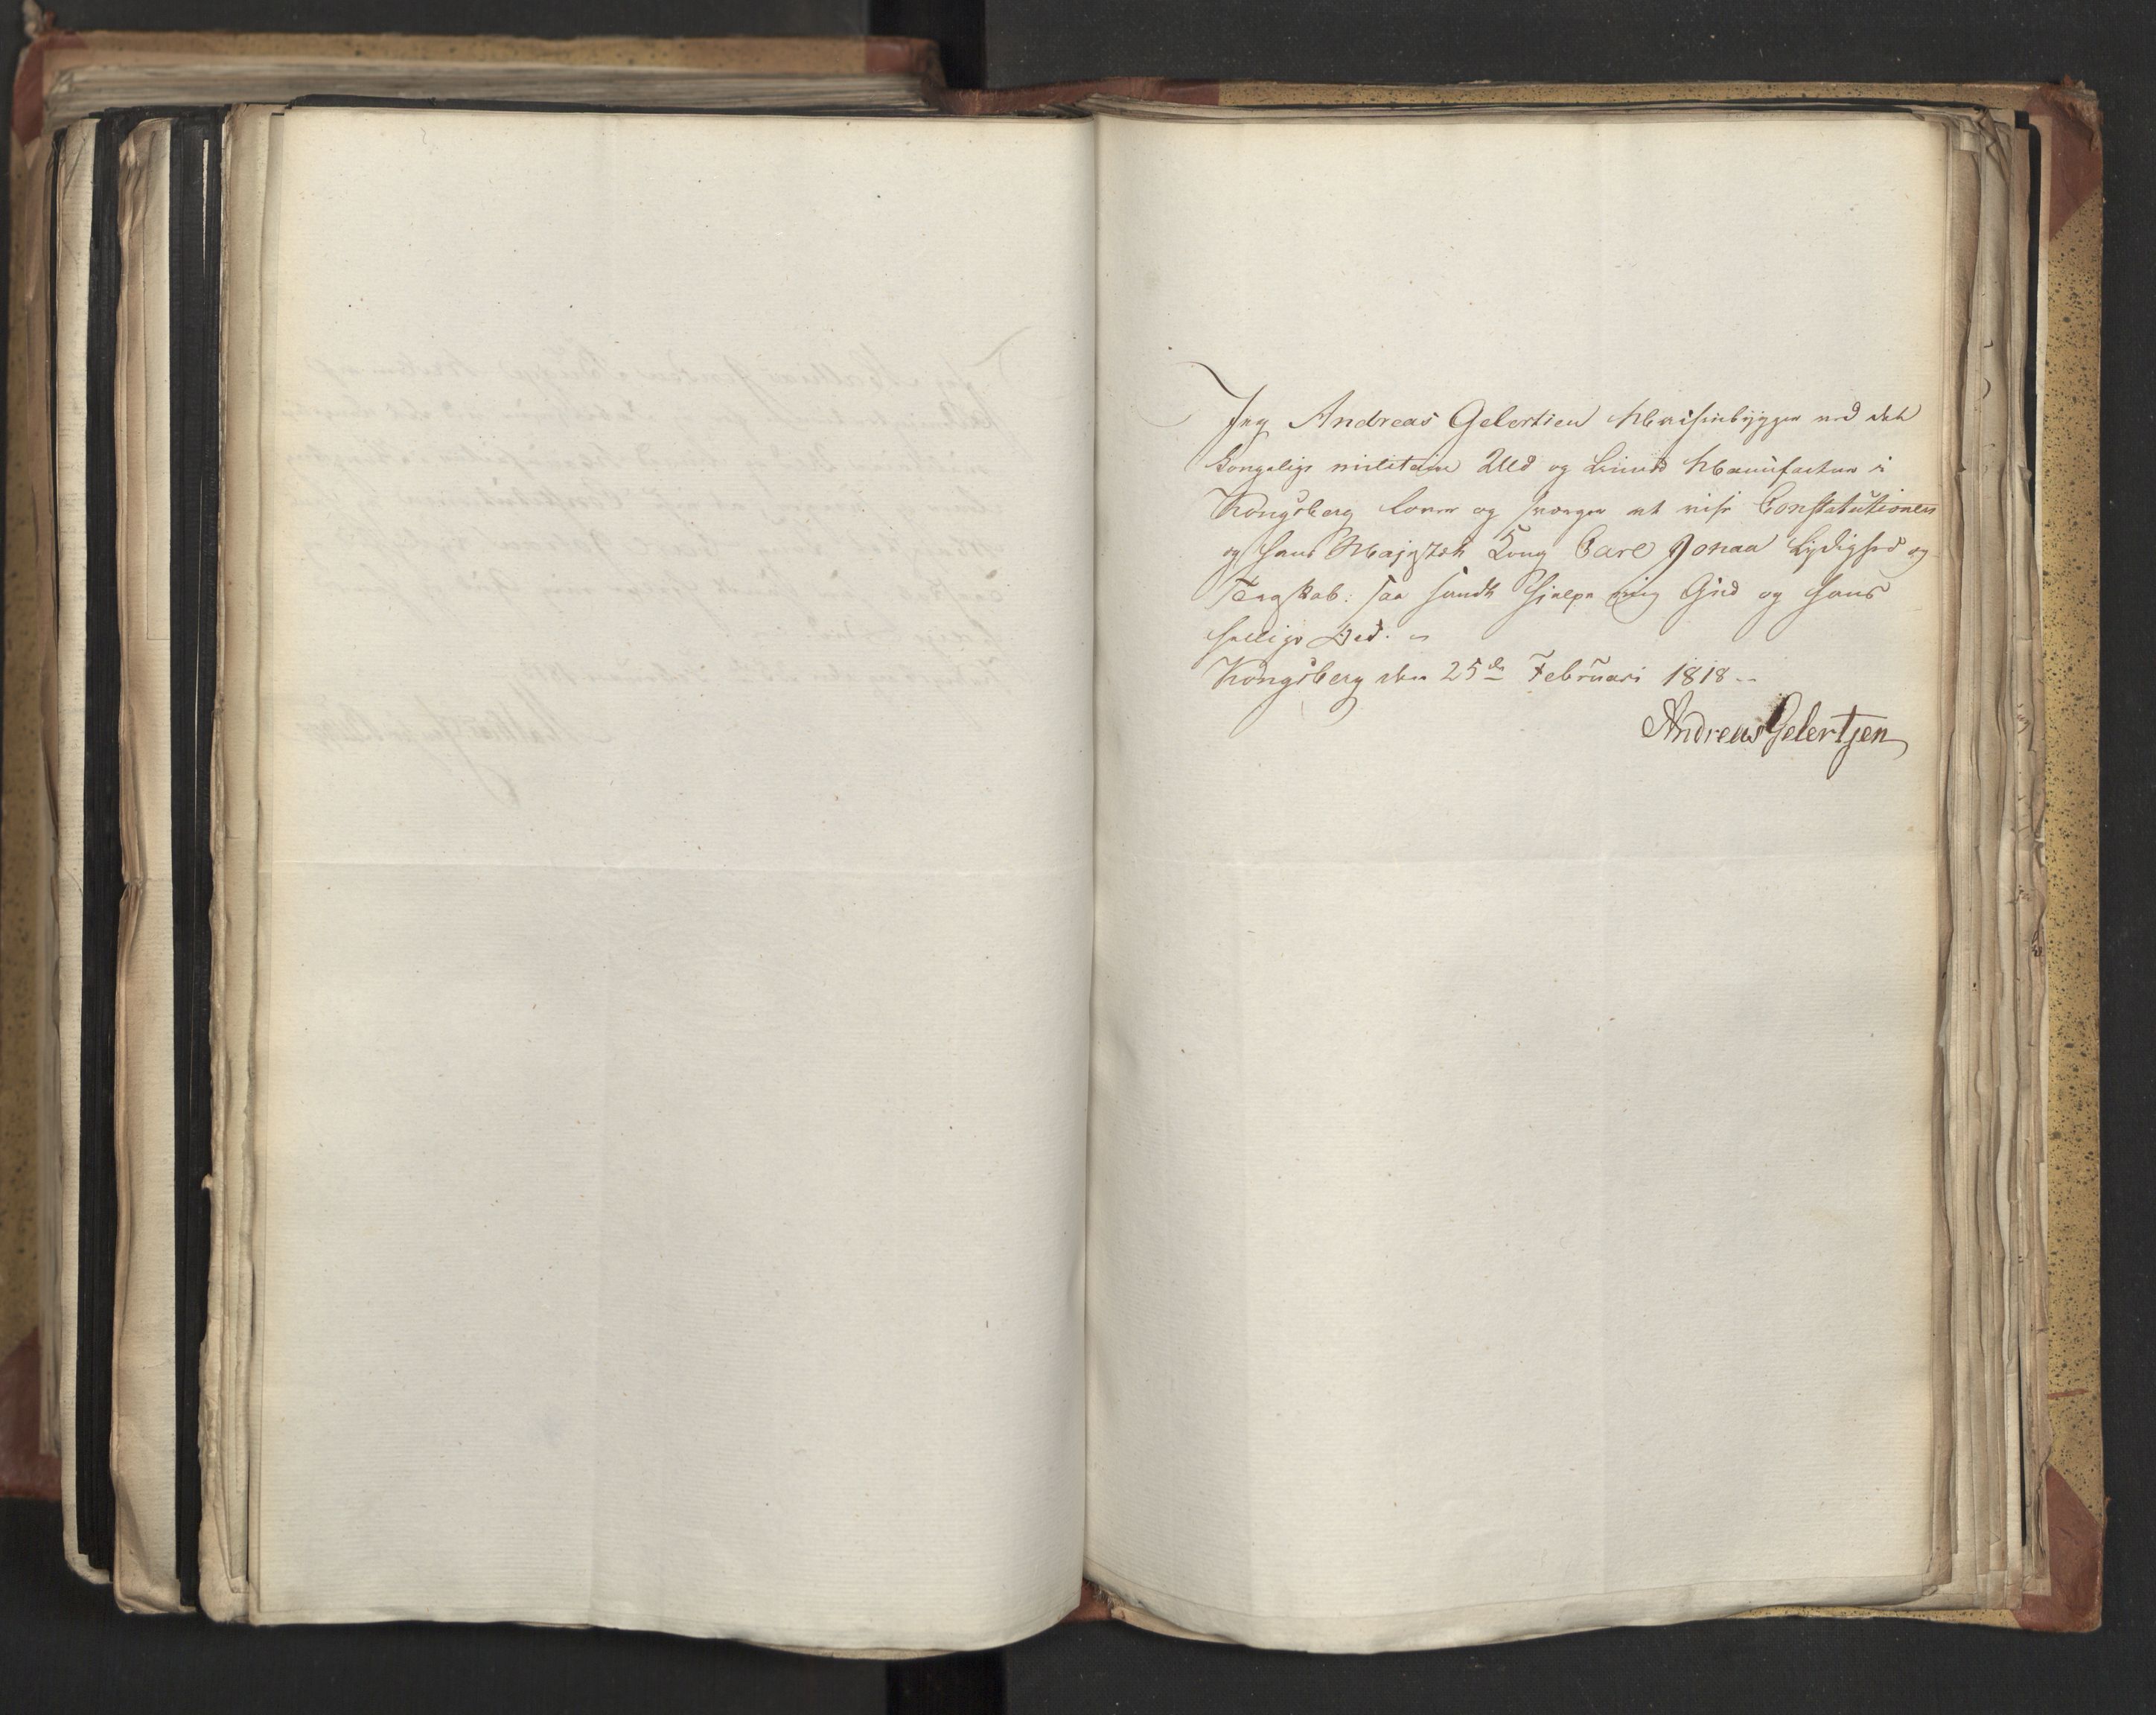 Jeg Andreas Gelertsen Maskinbygger ved det
kongelige militaire Uld og Linned Manufactur i
Kongsberg lover og sværger at vise Constatutionen
og Hans Majestæt Kong Carl Johan Lydighed og
Troeskab: saa sandt hjelpe mig Gud og hans
hellige Ord.
Kongsberg den 25de Februari 1818
Andreas Gelertsen